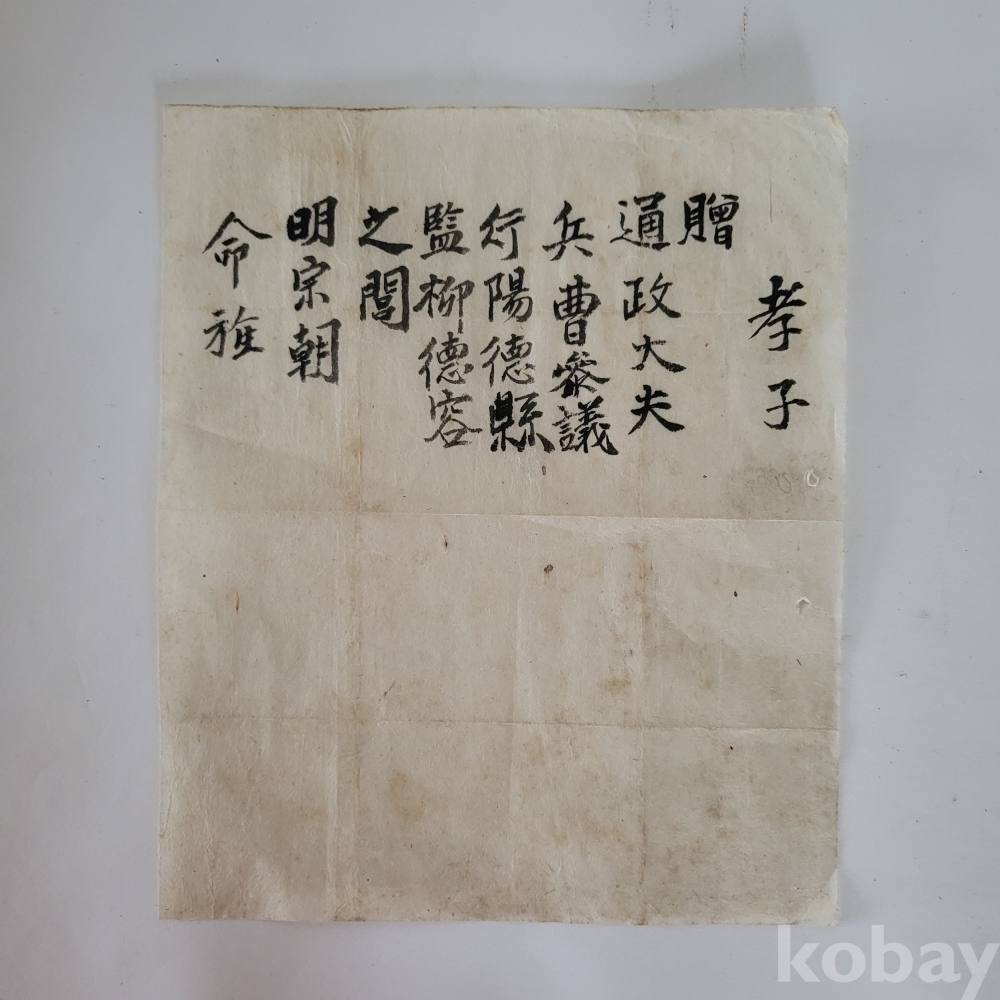 孝子
贈
通政大夫
兵曹叅議
行陽德縣
監柳德容
之閭
明宗朝
命旌
kobay